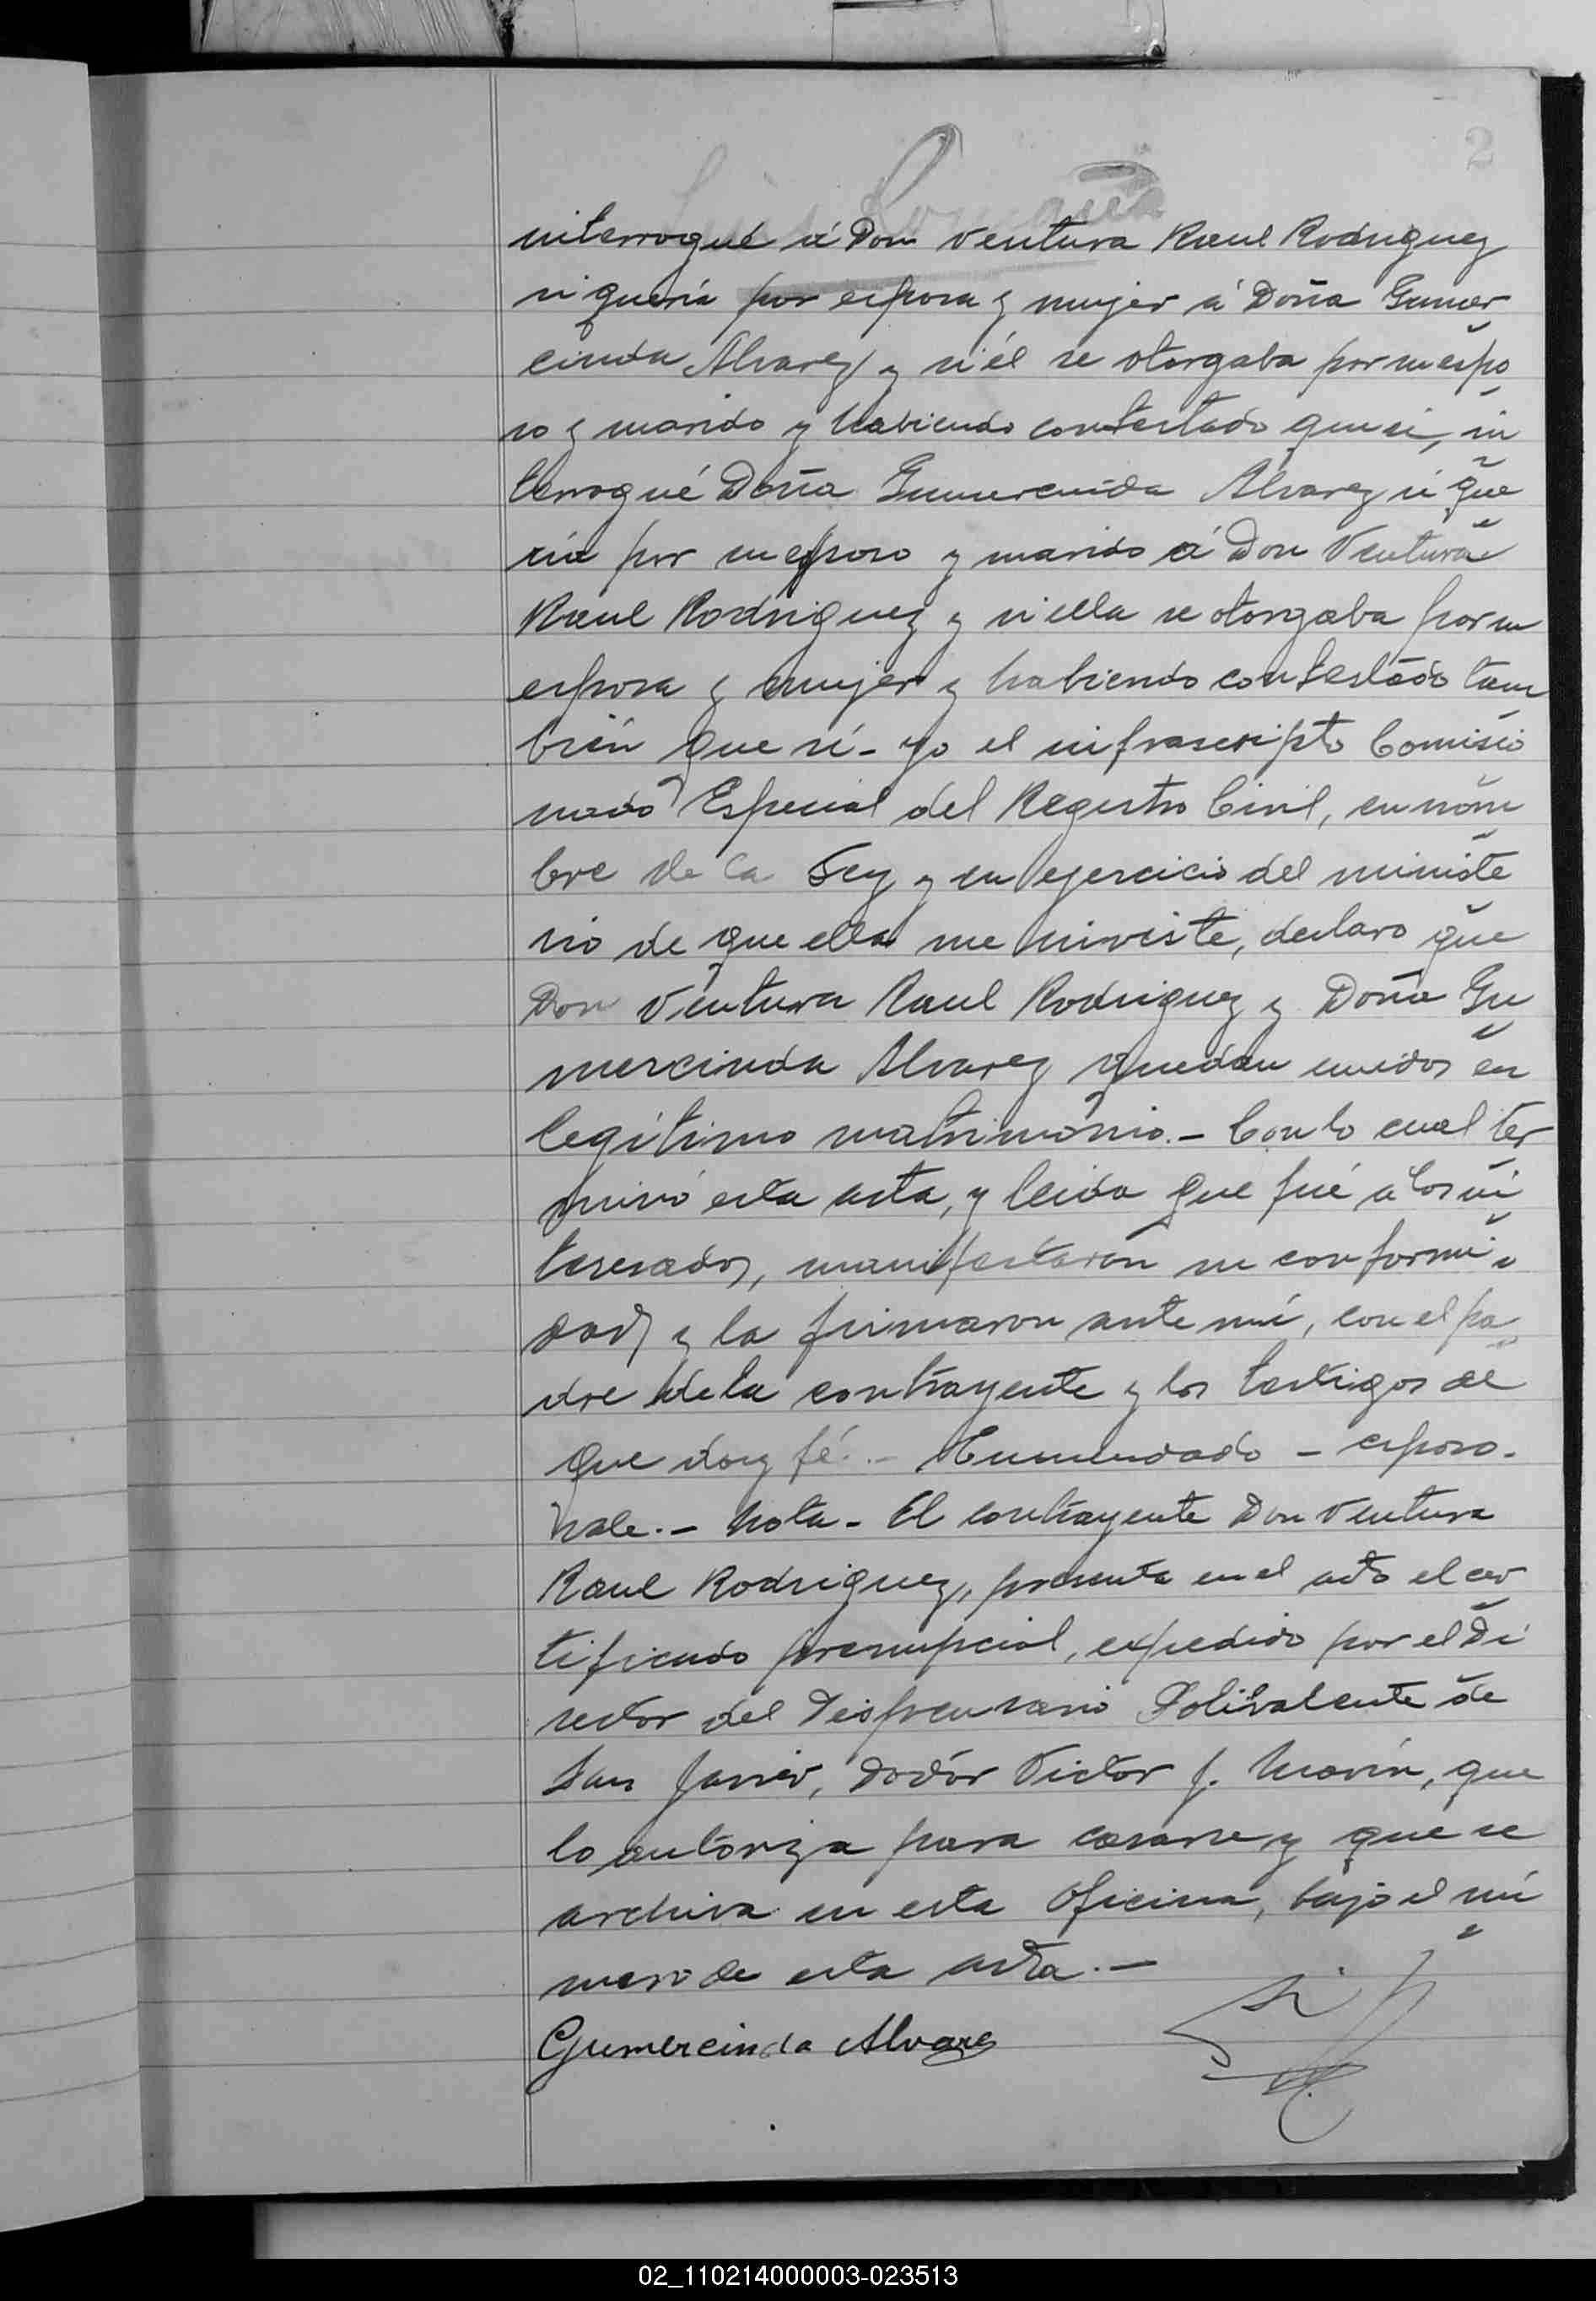 2
interrogué á Don Ventura Raul Rodriguez
si quería por esposa y mujer á Doña Gumer
cinda Alvarez y si él se otorgaba por su espo
so y marido y habiendo contestado que si, in
terrogué Doña Gumercinda Alvarez si que
ría por su esposo y marido á Don Ventura
Raul Rodriguez y si ella se otorgaba por su
esposa y mujer y habiendo contestado tam
bién que sí - yo el infrascripto Comisio
nado Especial del Registro Civil, en nom
bre de la Ley y en ejercicio del ministe
rio de que ella me inviste, declaro que
Don Ventura Raul Rodriguez y Doña Gu
mercinda Alvarez quedan unidos en
legítimo matrimonio.- Con lo cual ter
minó esta acta, y leida que fué a los in
teresados, manifestaron su conformi
dad y la firmaron ante mí, con el pa
dre de la contrayente y los testigos de
que doy fé.- Enmendado - esposo.
Vale.- Nota - El contrayente Don Ventura
Raul Rodriguez, presenta en el acto el cer
tificado prenupcial, expedido por el Di
rector del Dispensario Polivalente de
San Javier, Doctor Victor J. Marin, que
lo autoriza para casarse y que se
archiva en esta Oficina, bajo el nú
mero de esta acta.-
Gumercinda Alvarez
02_110214000003-023513